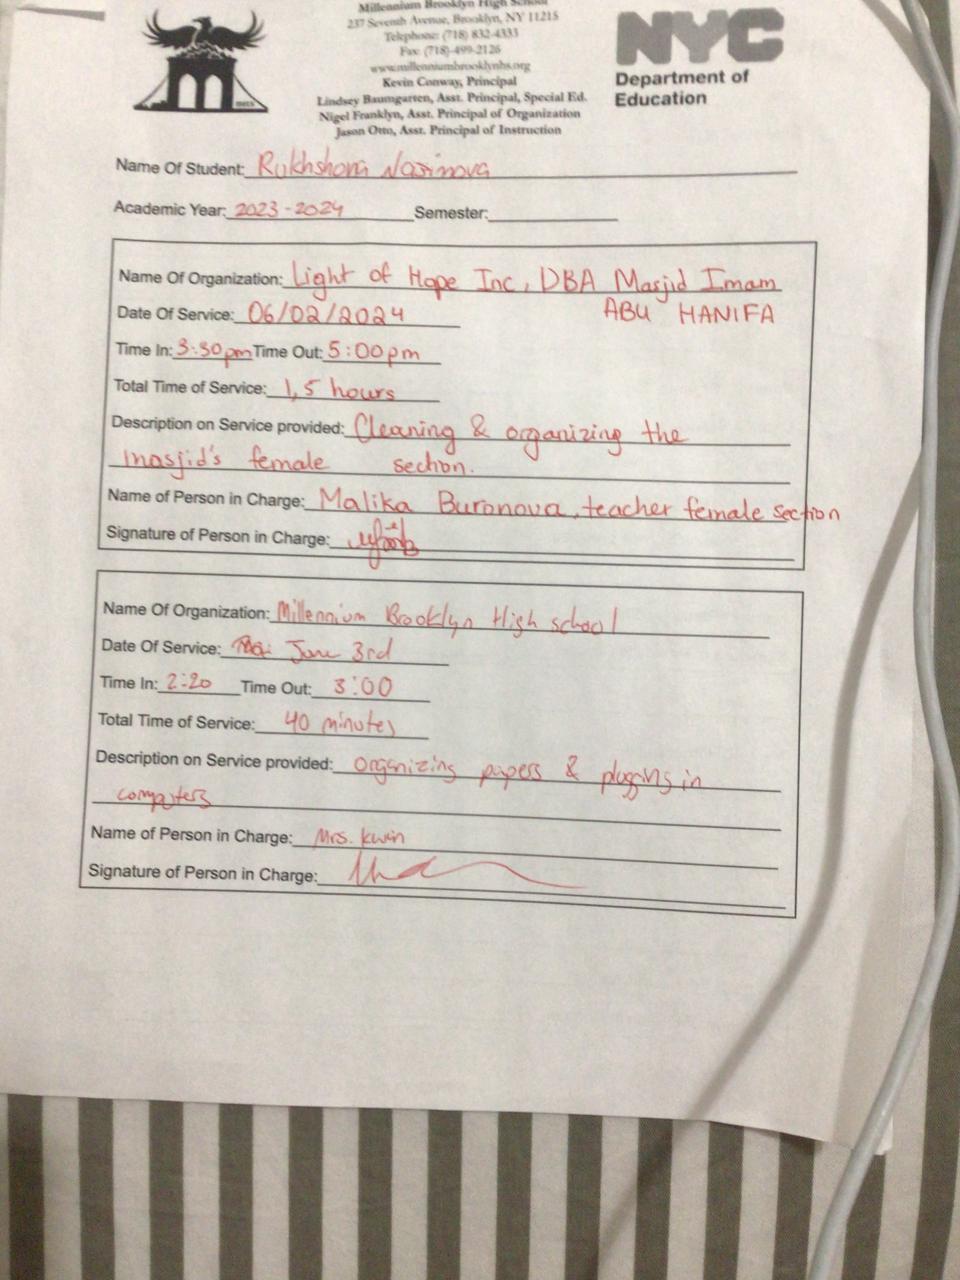 Millennium Brooklyn High School
237 Seventh Avenue, Brooklyn, NY 11215
Telephone: (718) 832-4333
Fax: (718)-499-2126
www.millenniumbrooklynhs.org
Kevin Conway, Principal
Lindsey Baumgarten, Asst. Principal, Special Ed.
Nigel Franklyn, Asst. Principal of Organization
Jason Otto, Asst. Principal of Instruction
NYC
Department of
Education
Name Of Student: Rukhshona Nasimova
Academic Year: 2023-2024 Semester:
Name Of Organization: Light of Hope Inc, DBA Masjid Imam
ABU HANIFA
Date Of Service: 06/02/2024
Time In: 3:30pm Time Out: 5:00pm
Total Time of Service: 1,5 hours
Description on Service provided: Cleaning & organizing the
masjid's female section.
Name of Person in Charge: Malika Buronova, teacher female section
Signature of Person in Charge:
Name Of Organization: Millennium Brooklyn High school
Date Of Service: June 3rd
Time In: 2:20 Time Out: 3:00
Total Time of Service: 40 minutes
Description on Service provided: organizing papers & plugging in
computers
Name of Person in Charge: Mrs. Kwin
Signature of Person in Charge: